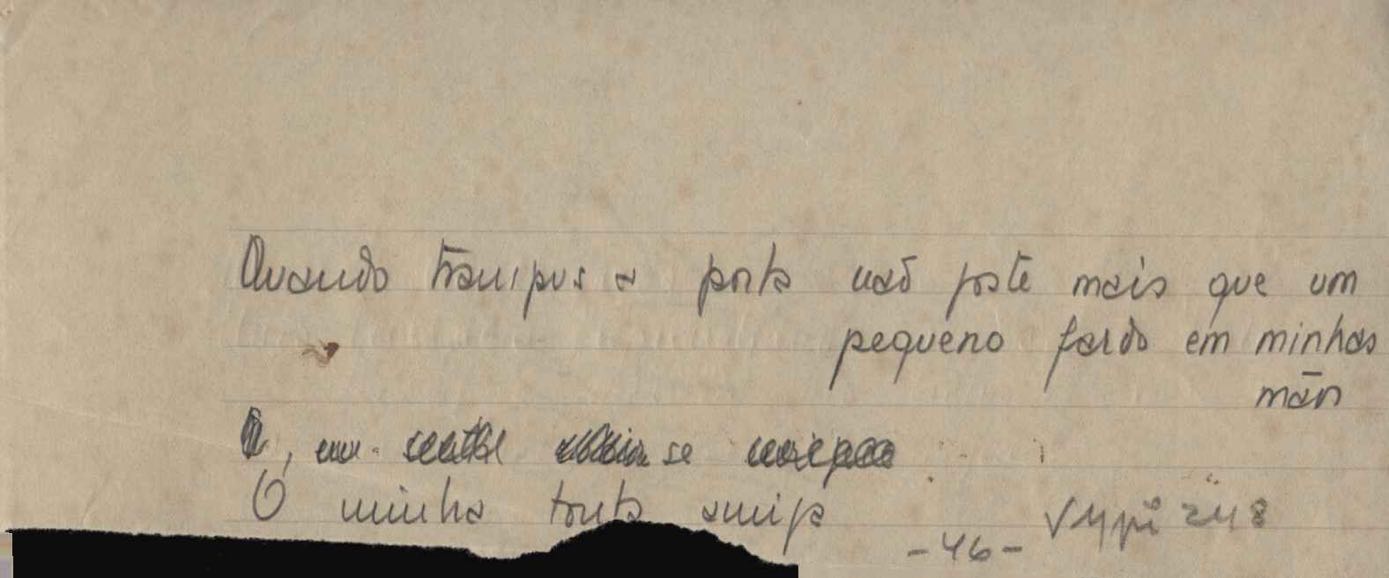 Quando transpus a porta não foste mais que um
pequeno fardo em minhas
mãos
se
O minha tonta amiga
-46-